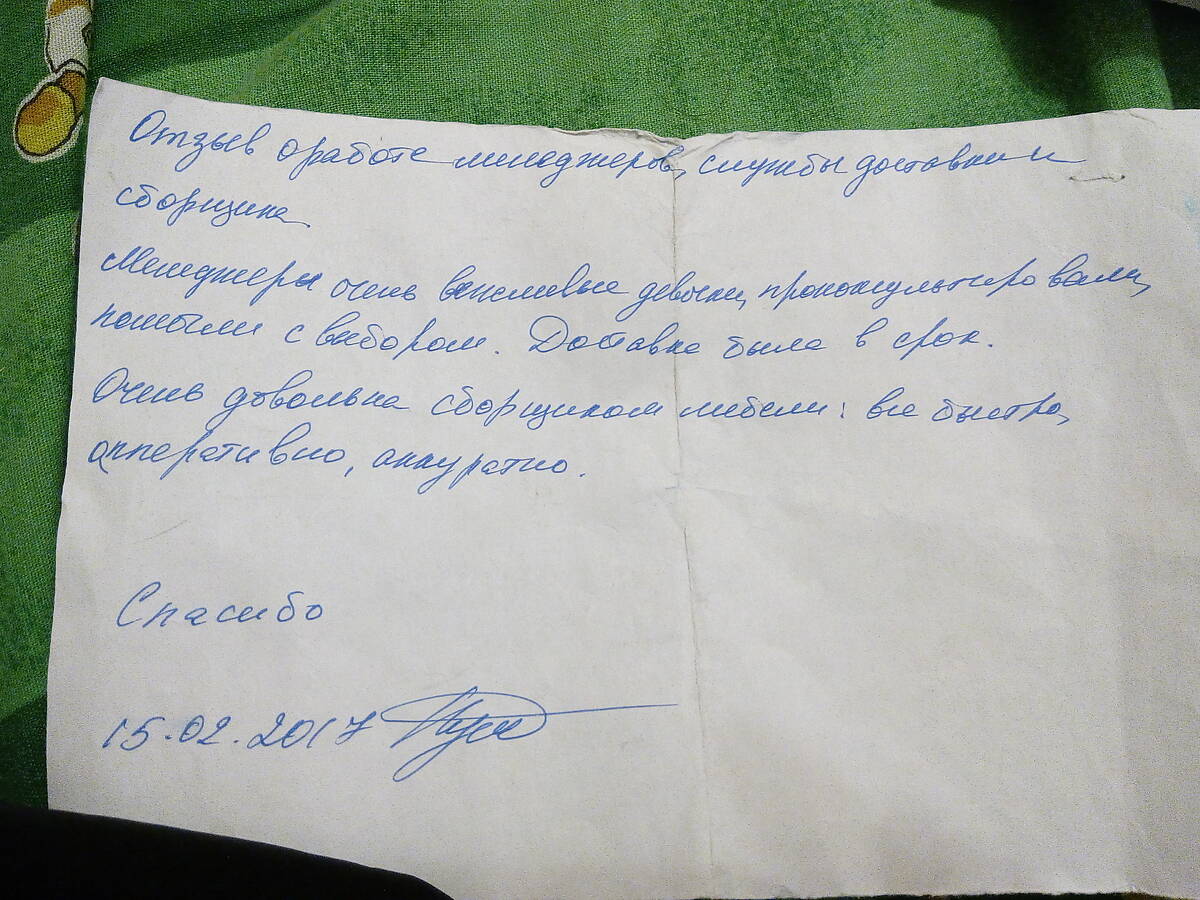 Отзыв о работе менеджеров, службы доставки и
сборщика
Менеджеры очень вежливые девочки, проконсультировали,
помогли с выбором. Доставка была в срок.
Очень довольна сборщиком мебели: все быстро,
опперативно, аккуратно.
Спасибо
15.02.2017